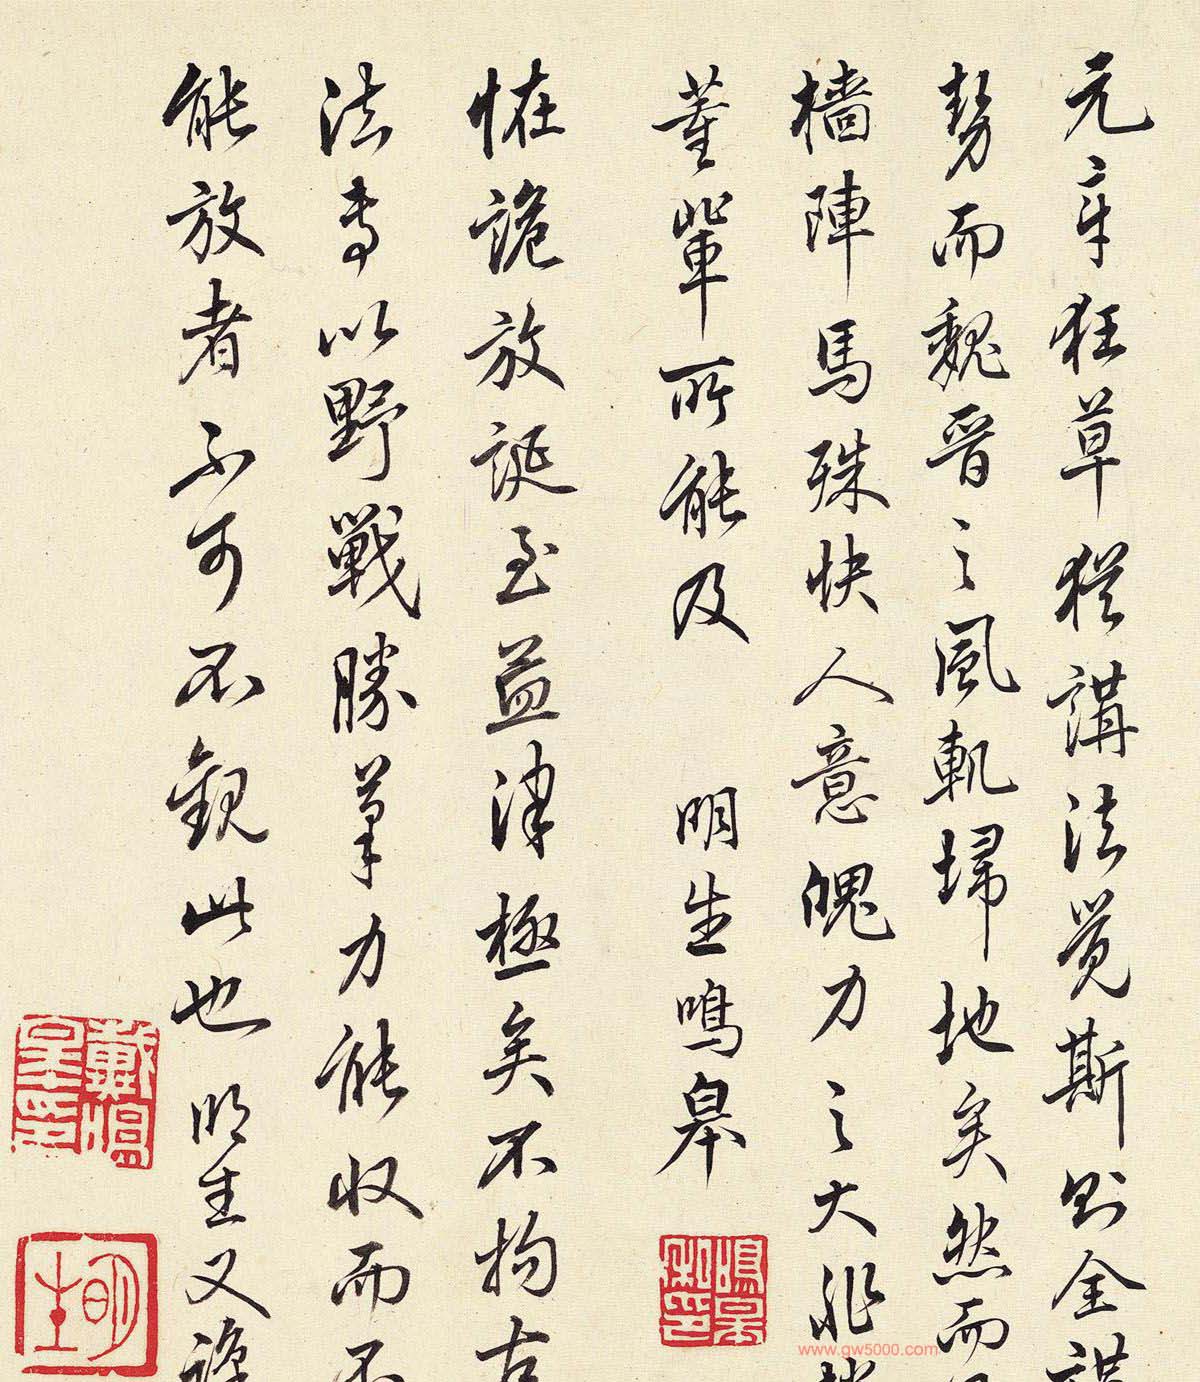 元章狂草猶講法覺斯則全講
勢而魏晉之風軌掃地矣然而
檣陣馬殊快人意魄力之大非
董輩所能及
明生鳴皋
怪詭放誕至孟津極矣不拘古
法専以野戰勝筆力能收而不
能放者不可不觀此也明生又
明生
www.gw5000.com